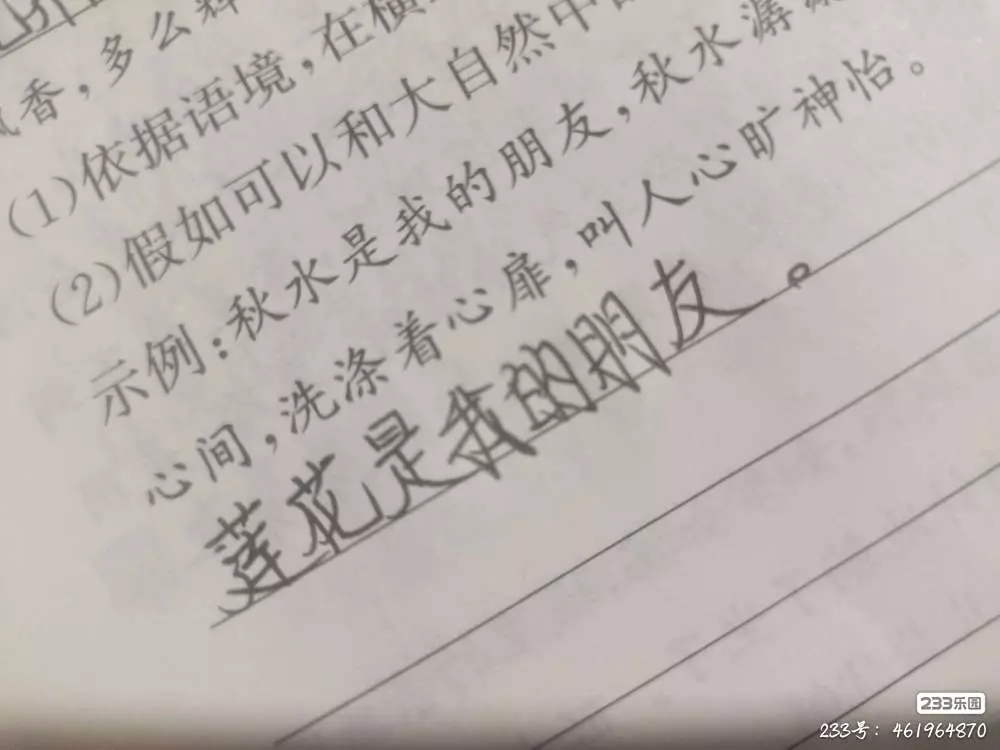 香，多么
(1)依据语境，在横
(2)假如可以和大自然中
示例：秋水是我的朋友，秋水潺
心间，洗涤着心扉，叫人心旷神怡。
莲花是我的朋友。
233乐园
233号：461964870